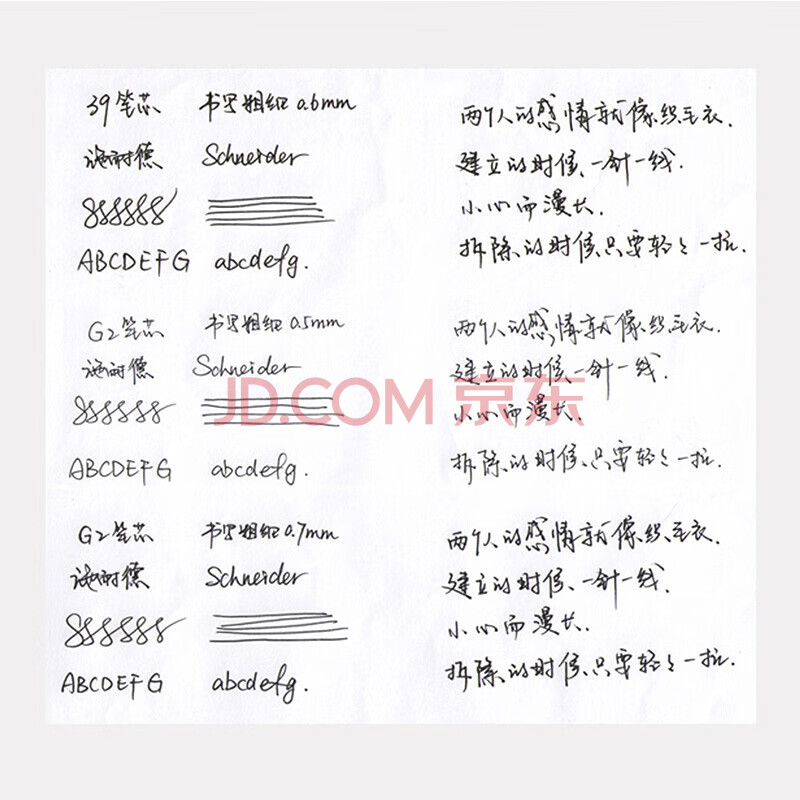 39笔芯 书写粗细0.6mm
施耐德 Schneider
ABCDEFG abcdefg.
两个人的感情就像织毛衣.
建立的时候、一针一线.
小心而漫长.
拆除的时候、只要轻轻一拉.
G2笔芯 书写粗细0.5mm
施耐德 Schneider
ABCDEFG abcdefg.
两个人的感情就像织毛衣.
建立的时候、一针一线.
小心而漫长.
拆除的时候、只要轻轻一拉.
JD.COM 京东
G2笔芯 书写粗细0.7mm
施耐德 Schneider
ABCDEFG abcdefg.
两个人的感情就像织毛衣.
建立的时候、一针一线.
小心而漫长.
拆除的时候、只要轻轻一拉.